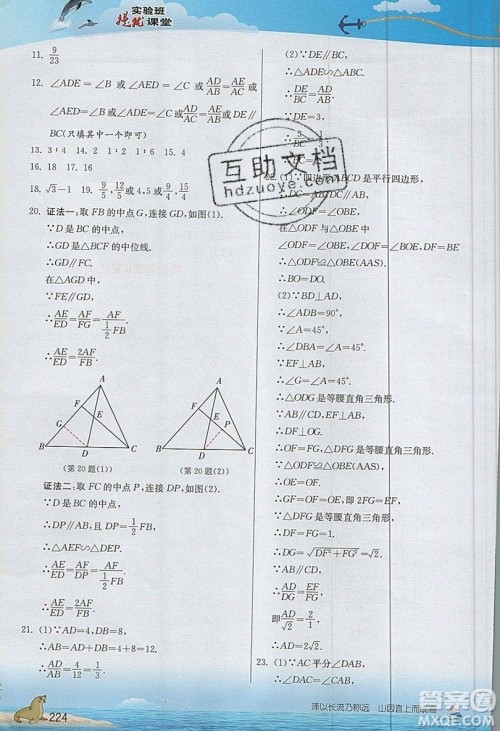 实验班
提优课堂
11. 9/23
12. ∠ADE=∠B 或 ∠AED=∠C 或 AD/AB=AE/AC 或
∠ADE=∠C 或 ∠AED=∠B 或 AD/AC=AE/AB 或 DE∥
BC(只填其中一个即可)
13. 3:4 14. 2 1:2 1:6 15. 4
16. 18 17. 16
18. √3-1 19. 9/5,12/5 或 4,5 或 9/4,15/4
20. 证法一:取 FB 的中点 G,连接 GD,如图(1).
∵D 是 BC 的中点,
∴GD 是△BCF 的中位线.
∴GD∥FC.
在△AGD 中,
∵FE∥GD,
∴AE/ED=AF/FG=AF/(1/2 FB).
∴AE/ED=2AF/FB.
A
F
G
E
B
D
C
(第 20 题(1))
A
F
E
P
B
D
C
(第 20 题(2))
证法二:取 FC 的中点 P,连接 DP,如图(2).
∵D 是 BC 的中点,
∴DP∥AB,且 DP=1/2 FB.
∴△AEF∽△DEP.
∴AE/ED=AF/DP=AF/(1/2 FB).
∴AE/ED=2AF/FB.
21. (1)∵AD=4,DB=8,
∴AB=AD+DB=4+8=12.
∴AD/AB=4/12=1/3.
(2)∵DE∥BC,
∴DE/BC=AD/AB.
∵DE=3,
∴3/BC=1/3.
∴
互助文档
hdzuoye.com
四边形 ABCD 是平行四边形,
∴∠OAD=∠OBE.
在△OAF 与△OBE 中,
∴△OAF≌△OBE(AAS).
(2)∵BD⊥AD,
∴∠ADB=90°.
∵∠A=45°,
∴∠DBA=∠A=45°.
∵EF⊥AB,
∴△ODG 是等腰直角三角形.
∵AB∥CD,EF⊥AB,
∴DG=GF.
∵△OAF≌△OBE(AAS),
∴OE=OF.
∴GF=OF=OE,即 2FG=EF.
∵△DFG 是等腰直角三角形,
∴DG=√(DF²+FG²)=√2.
∵AB∥CD,
∴AD/DG=EF/FG.
即 AD/√2=2/1.
∴AD=2√2.
23. (1)∵AC 平分∠DAB,
224
泽以长流乃称远 山因直上而成高
答案圈
MXQE.COM